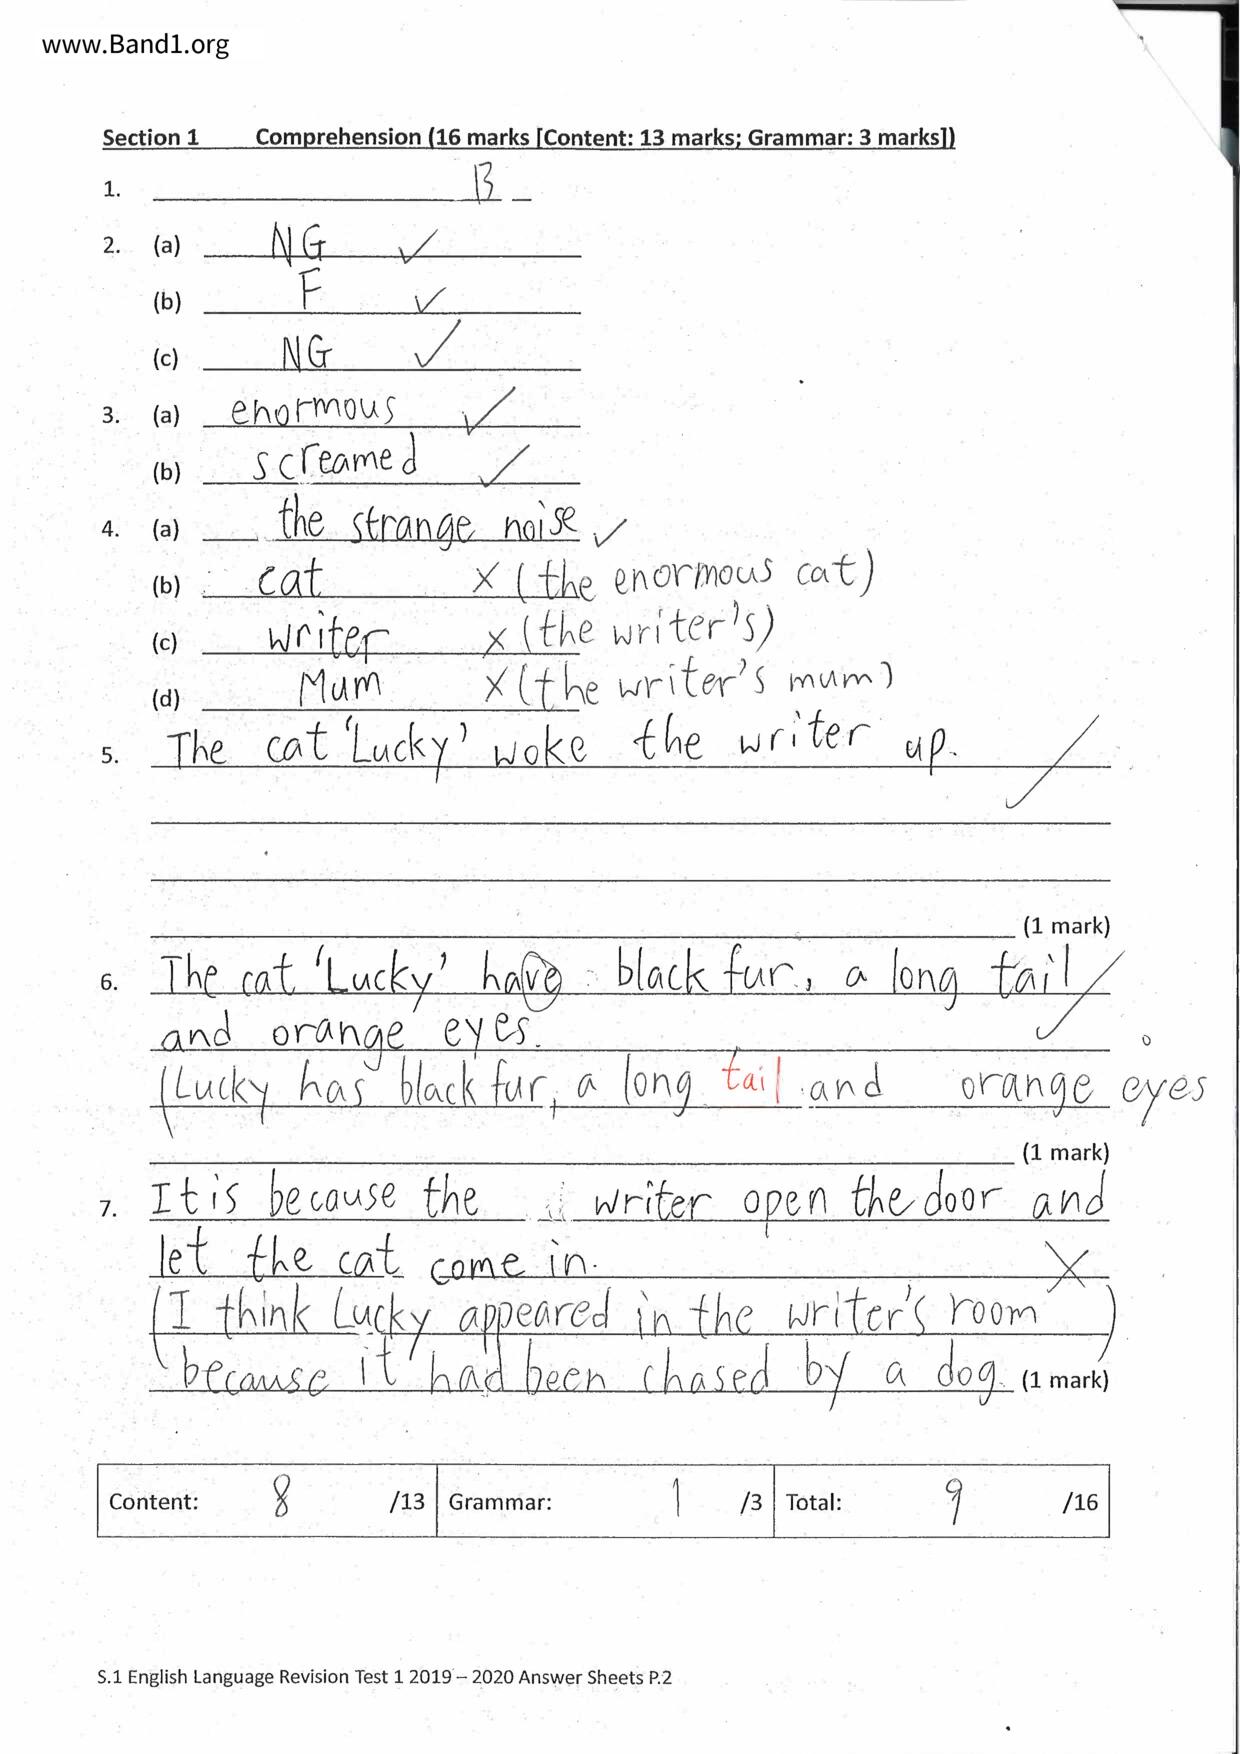 www.Band1.org
Section 1 Comprehension (16 marks [Content: 13 marks; Grammar: 3 marks])
1. B
2. (a) NG ✓
(b) F ✓
(c) NG ✓
3. (a) enormous ✓
(b) screamed ✓
4. (a) the strange noise ✓
(b) cat X (the enormous cat)
(c) writer X (the writer's)
(d) Mum X (the writer's mum)
5. The cat 'Lucky' woke the writer up. ✓
(1 mark)
6. The cat 'Lucky' have black fur, a long tail
and orange eyes. ✓
(Lucky has black fur, a long tail and orange eyes
(1 mark)
7. It is because the writer open the door and
let the cat come in. X
(I think Lucky appeared in the writer's room )
because it had been chased by a dog. (1 mark)
Content: 8 /13 Grammar: 1 /3 Total: 9 /16
S.1 English Language Revision Test 1 2019 – 2020 Answer Sheets P.2